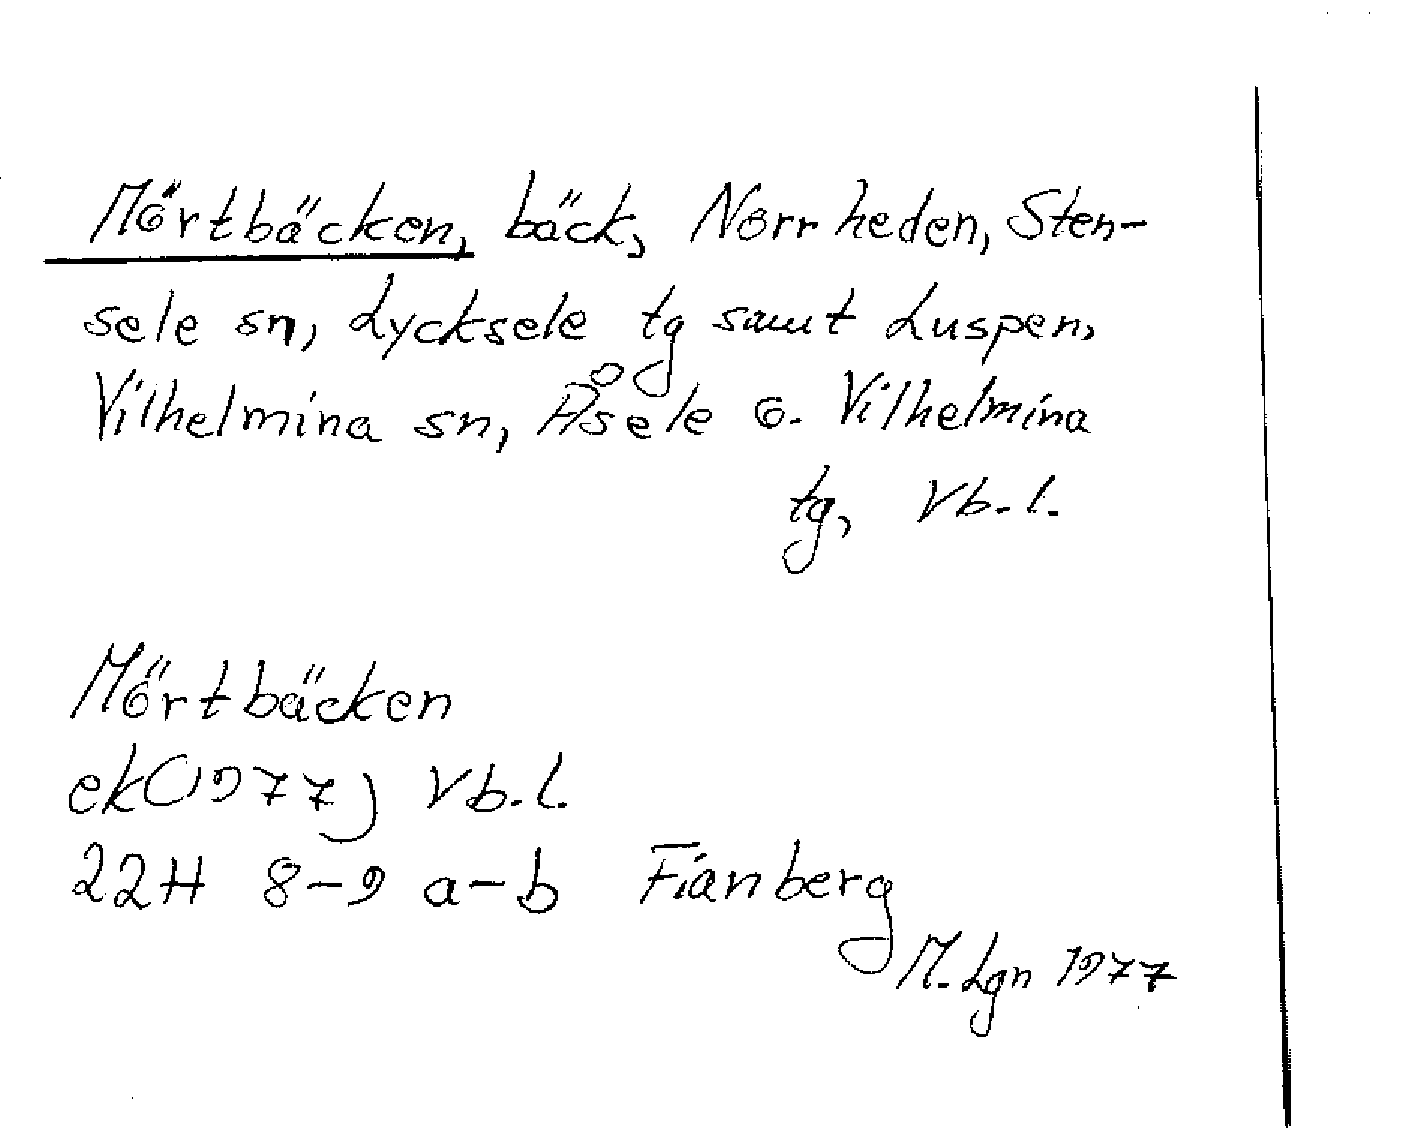 Mörtbäcken, bäck, Norrheden, Sten-
sele sn, Lycksele tg samt Luspen,
Vilhelmina sn, Åsele o. Vilhelmina
tg, Vb. l.
Mörtbäcken
ek(1977) Vb. l.
22H 8-9 a-b Fianberg
M. Lgn 1977